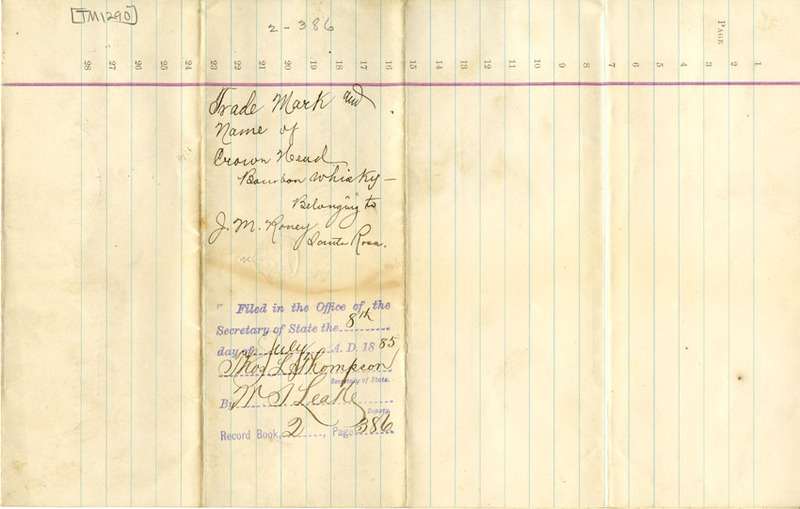 [TM1290]
2-386
PAGE
28 27 26 25 24 23 22 21 20 19 18 17 16 15 14 13 12 11 10 9 8 7 6 5 4 3 2 1
Trade Mark and
Name of
Crown Head
Bourbon Whisky—
Belonging to
J. M. Roney
Santa Rosa.
Filed in the Office of the
Secretary of State the 8th
day of July, A. D. 1885
Thos L. Thompson
Secretary of State.
By W. J. Leake
Deputy
Record Book, 2, Page 386